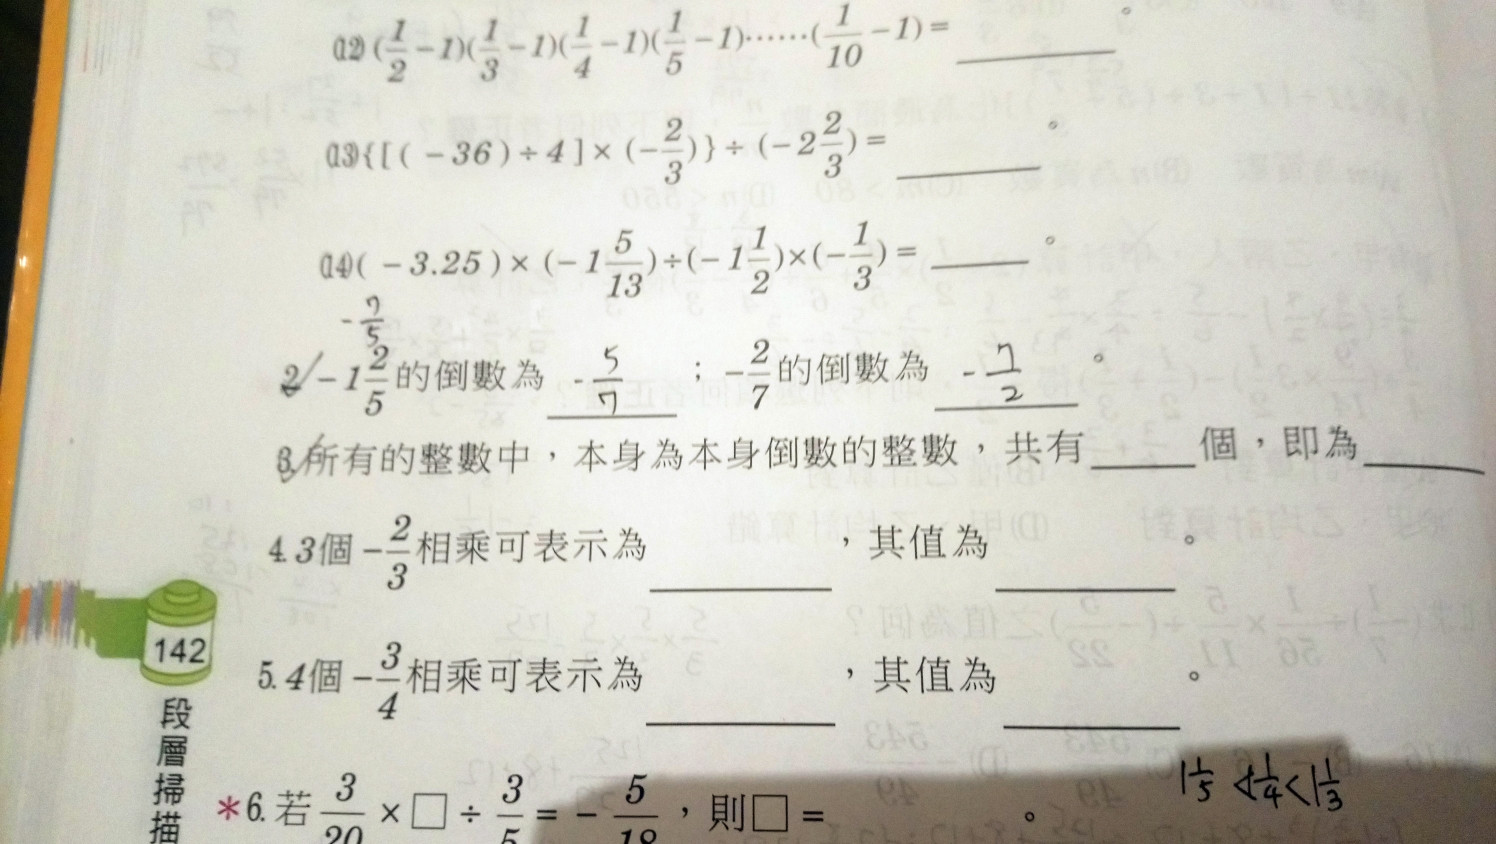 (12) (1/2 − 1)(1/3 − 1)(1/4 − 1)(1/5 − 1)……(1/10 − 1) = ______。
(13) {[(−36) ÷ 4] × (−2/3)} ÷ (−2 2/3) = ______。
(14) (−3.25) × (−1 5/13) ÷ (−1 1/2) × (−1/3) = ______。
-7/5
2. −1 2/5 的倒數為 -5/7 ; −2/7 的倒數為 -7/2 。
3. 所有的整數中,本身為本身倒數的整數,共有______個,即為______
4. 3個 −2/3 相乘可表示為______,其值為______。
5. 4個 −3/4 相乘可表示為______,其值為______。
142
段層掃描
*6. 若 3/20 × □ ÷ 3/5 = − 5/18 ,則□ = 。
1 1/5 < 1 1/4 < 1 1/3